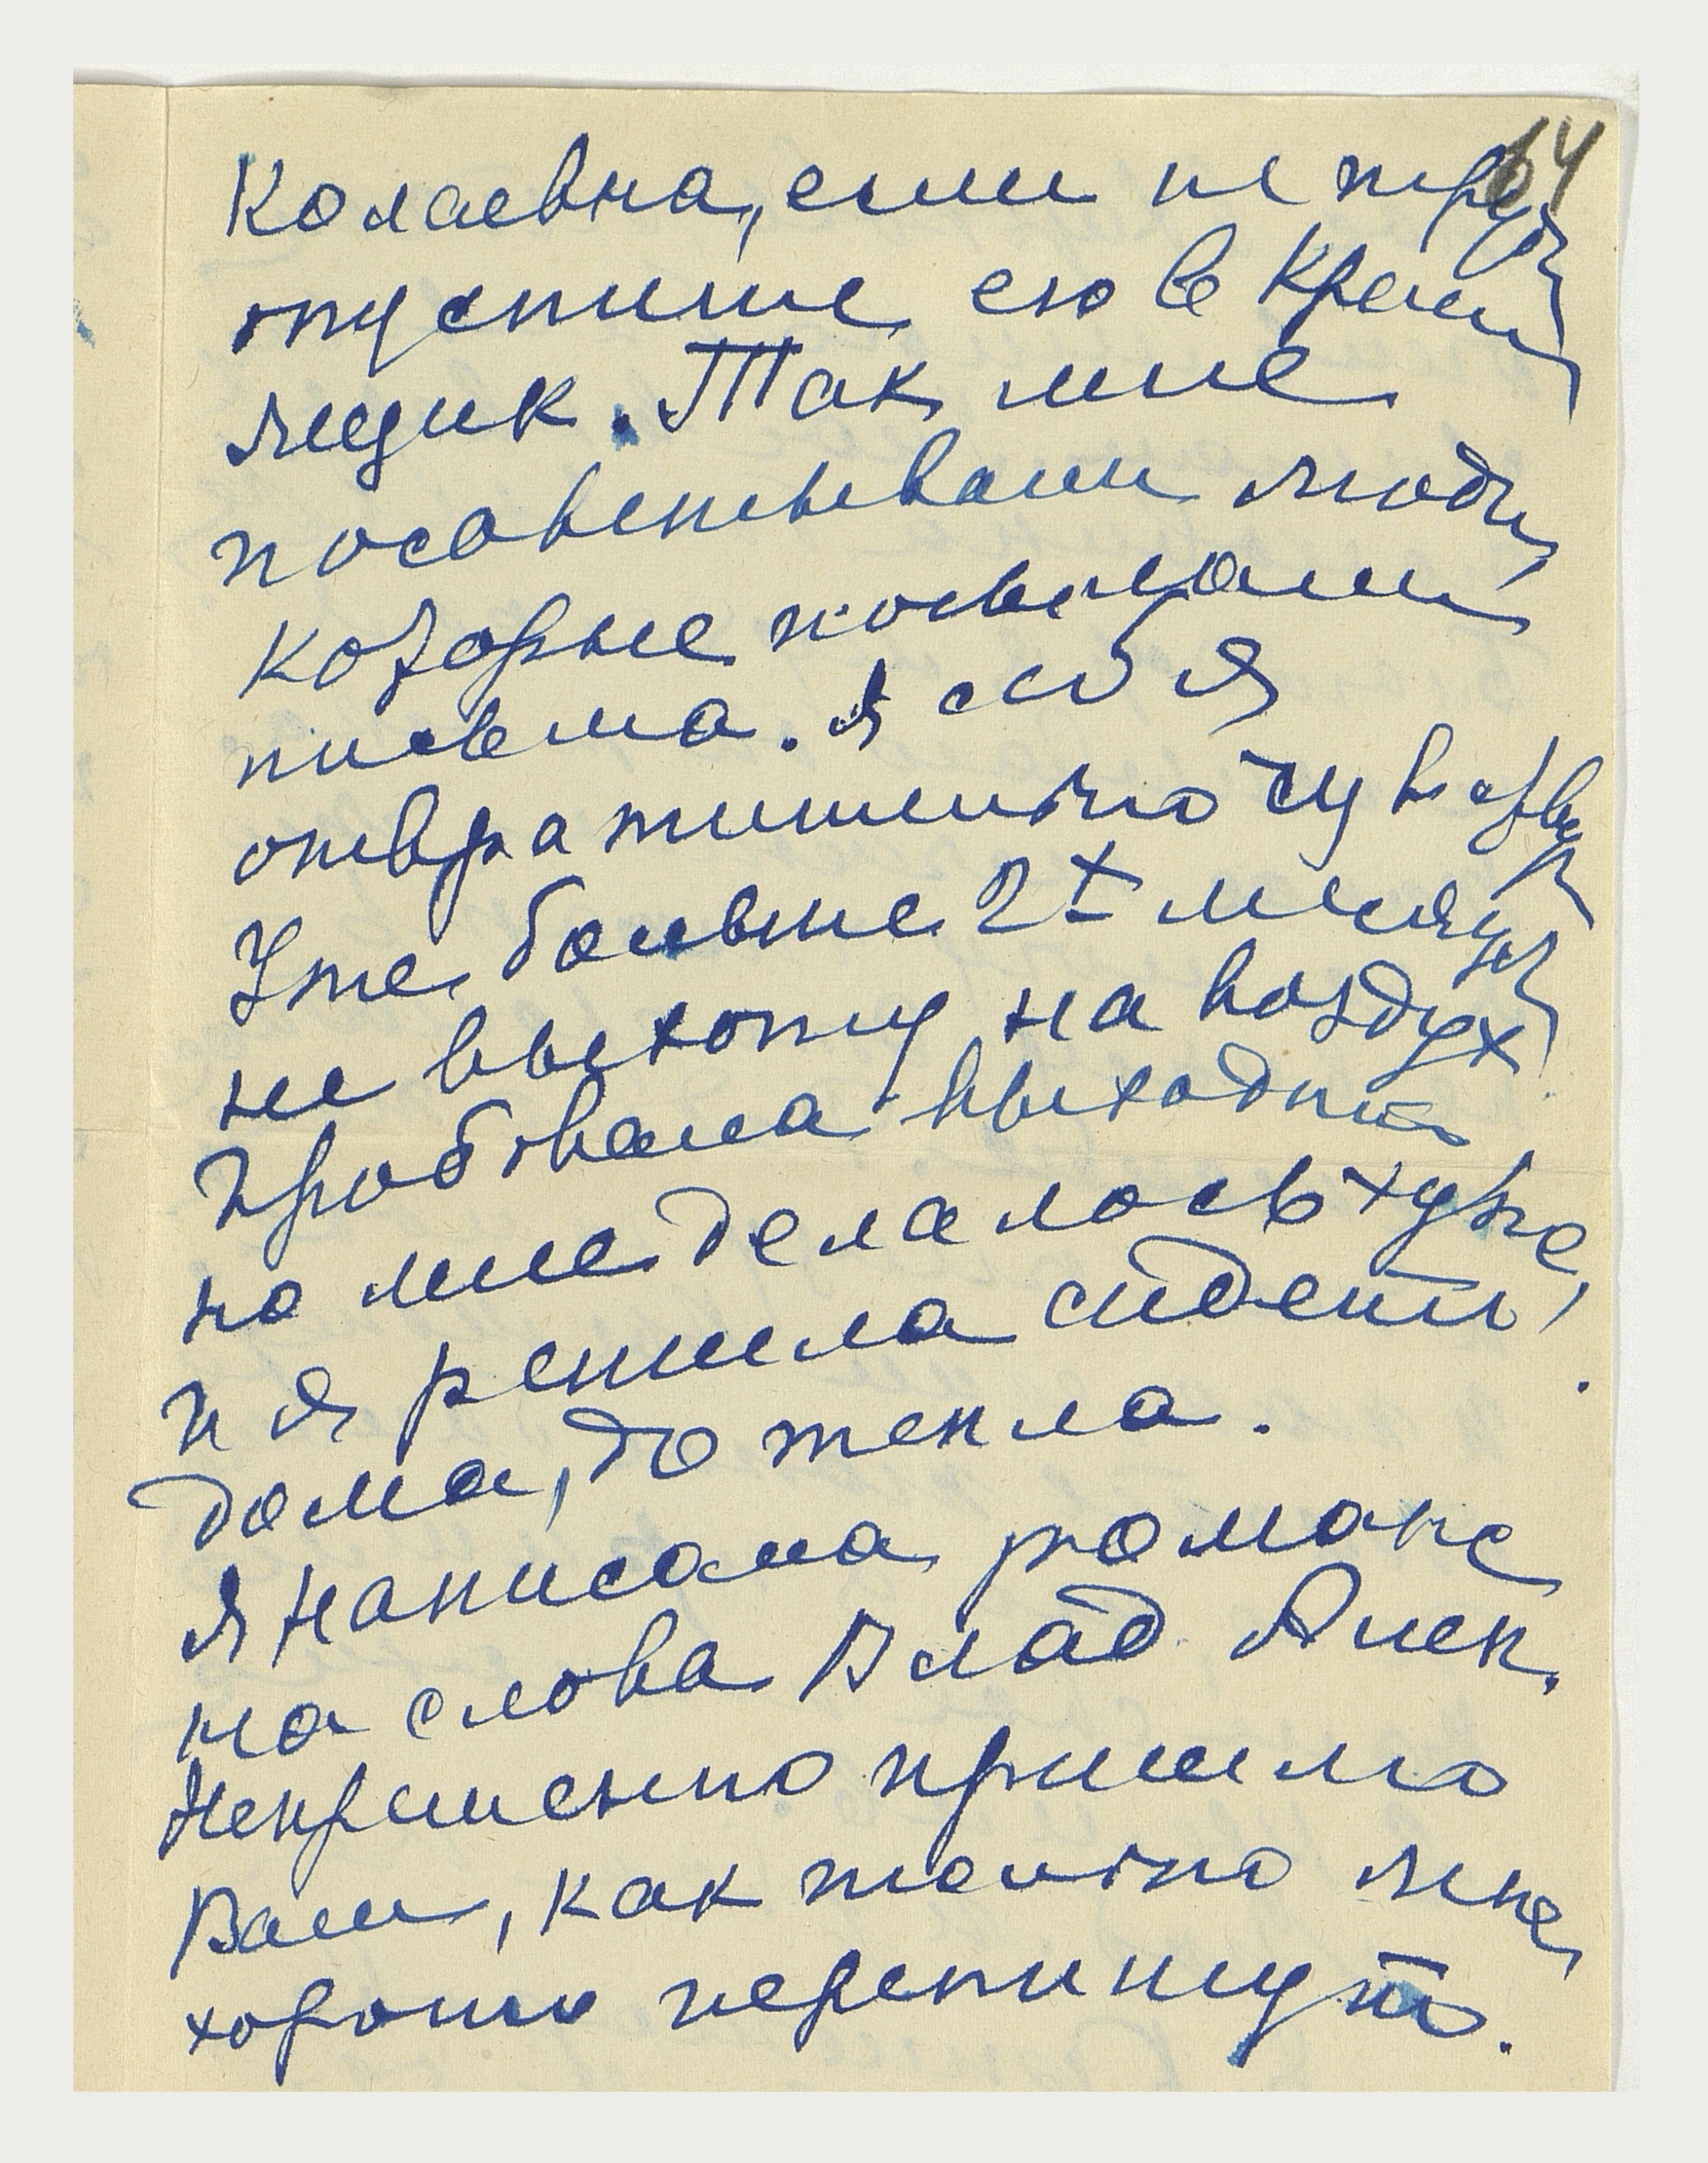 64
колаевна, если не трудн
опустите ею в Кремл
ящик. Так мне
посоветывали люди
которые посылали
письма. Я себя
отвратительно чувствую
Уже больше 2х месяцев
не выхожу на воздух
Пробовала выходить
но мне делалось хуже,
и я решила сидеть
дома, до тепла.
Я написала романс
на слова Влад Алек.
Непременно пришлю
Вам, как только мне
хорошо перепишут.